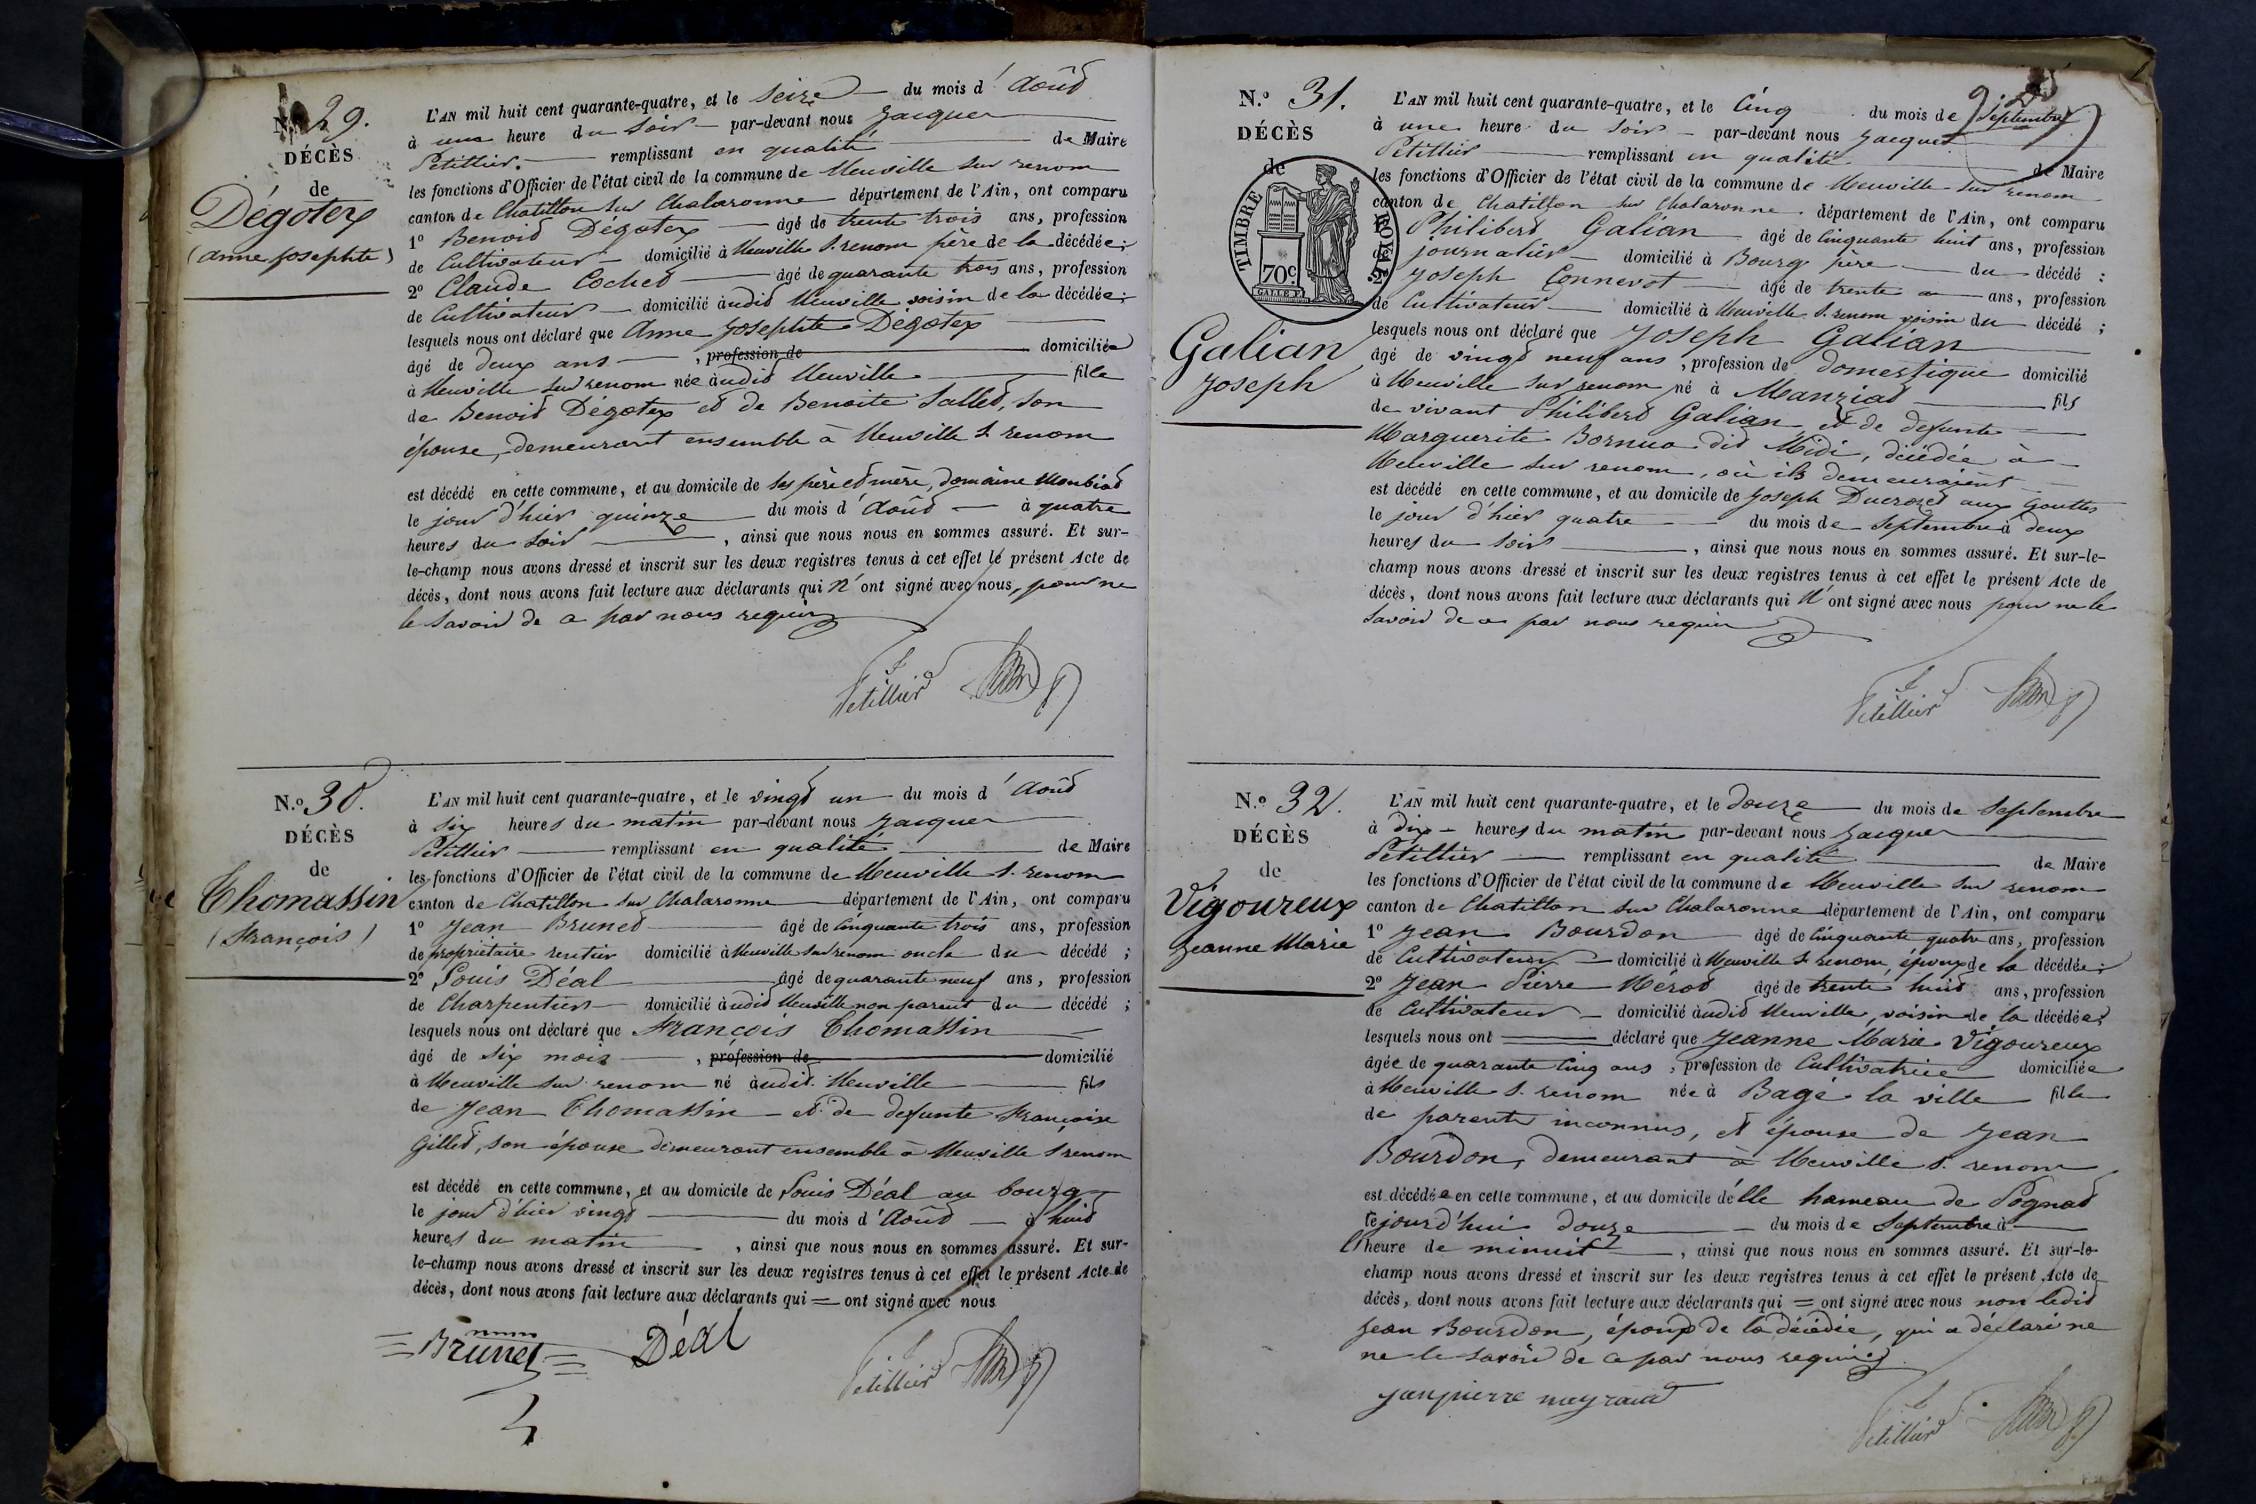 N.º 29.
DÉCÈS
de
Dégotex
(anne josephte)
L'AN mil huit cent quarante-quatre, et le seize du mois d'Août
à une heure du soir par-devant nous Jacques
Petillier. remplissant en qualité de Maire
les fonctions d'Officier de l'état civil de la commune de Neuville sur renom
canton de Chatillon sur Chalaronne département de l'Ain, ont comparu
1º Benoit Dégotex âgé de trente trois ans, profession
de Cultivateur domicilié à Neuville s. renom père de la décédée;
2º Claude Cochet âgé de quarante trois ans, profession
de Cultivateur domicilié àudit Neuville voisin de la décédée;
lesquels nous ont déclaré que Anne Josephte Dégotex
âgé de deux ans, profession de domiciliée
à Neuville sur renom née àudit Neuville fille
de Benoit Dégotex et de Benoite Sallet, son
épouse, demeurant ensemble à Neuville s. renom
est décédé en cette commune, et au domicile de ses père et mère, domaine Monbiat
le jour d'hier quinze du mois d'Août à quatre
heures du soir, ainsi que nous nous en sommes assuré. Et sur-
le-champ nous avons dressé et inscrit sur les deux registres tenus à cet effet le présent Acte de
décès, dont nous avons fait lecture aux déclarants qui n'ont signé avec nous, pour ne
le savoir de ce par nous requis
Petillier
N.º 30.
DÉCÈS
de
Thomassin
(François)
L'AN mil huit cent quarante-quatre, et le vingt un du mois d'Août
à six heures du matin par-devant nous Jacques
Petillier remplissant en qualité de Maire
les fonctions d'Officier de l'état civil de la commune de Neuville s. renom
canton de Chatillon sur Chalaronne département de l'Ain, ont comparu
1º Jean Brunet âgé de cinquante trois ans, profession
de propriétaire rentier domicilié à Neuville sur renom oncle du décédé;
2º Louis Déal âgé de quarante neuf ans, profession
de Charpentier domicilié àudit Neuville non parent du décédé;
lesquels nous ont déclaré que François Thomassin
âgé de six mois, profession de domicilié
à Neuville sur renom né àudit Neuville fils
de Jean Thomassin et de defunte Françoise
Gillet, son épouse demeurant ensemble à Neuville s renom
est décédé en cette commune, et au domicile de Louis Déal au bourg
le jour d'hier vingt du mois d'Août à huit
heures du matin, ainsi que nous nous en sommes assuré. Et sur-
le-champ nous avons dressé et inscrit sur les deux registres tenus à cet effet le présent Acte de
décès, dont nous avons fait lecture aux déclarants qui = ont signé avec nous
Brunet Déal Petillier
N.º 31.
DÉCÈS
de
TIMBRE ROYAL
70c.
Galian
Joseph
L'AN mil huit cent quarante-quatre, et le Cinq du mois de Septembre
à une heure du soir par-devant nous Jacques
Petillier remplissant en qualité de Maire
les fonctions d'Officier de l'état civil de la commune de Neuville sur renom
canton de Chatillon sur Chalaronne. département de l'Ain, ont comparu
Philibert Galian âgé de Cinquante huit ans, profession
de journalier domicilié à Bourg père du décédé:
2º Joseph Connevot âgé de trente ans, profession
de Cultivateur domicilié à Neuville s. renom voisin du décédé;
lesquels nous ont déclaré que Joseph Galian
âgé de vingt neuf ans, profession de domestique domicilié
à Neuville sur renom né à Manziat fils
de vivant Philibert Galian et de defunte
Marguerite Bornua dit Midi, décédée à
Neuville sur renom, où ils demeuraient
est décédé en cette commune, et au domicile de Joseph Ducroset aux Gouttes
le jour d'hier quatre du mois de Septembre à deux
heures du soir, ainsi que nous nous en sommes assuré. Et sur-le-
champ nous avons dressé et inscrit sur les deux registres tenus à cet effet le présent Acte de
décès, dont nous avons fait lecture aux déclarants qui n'ont signé avec nous pour ne le
savoir de ce par nous requis
Petillier
N.º 32.
DÉCÈS
de
Vigoureux
Jeanne Marie
L'AN mil huit cent quarante-quatre, et le douze du mois de Septembre
à dix heures du matin par-devant nous Jacques
Petillier remplissant en qualité de Maire
les fonctions d'Officier de l'état civil de la commune de Neuville sur renom
canton de Chatillon sur Chalaronne département de l'Ain, ont comparu
1º Jean Bourdon âgé de Cinquante quatre ans, profession
de Cultivateur domicilié à Neuville s. renom, époux de la décédée;
2º Jean Pierre Mérot âgé de trente huit ans, profession
de Cultivateur domicilié àudit Neuville, voisin de la décédée;
lesquels nous ont déclaré que Jeanne Marie Vigoureux
âgée de quarante Cinq ans, profession de Cultivatrice domiciliée
à Neuville s. renom née à Bagé la ville fille
de parents inconnus, et épouse de Jean
Bourdon, demeurant à Neuville s. renom
est décédée en cette commune, et au domicile d'elle hameau de Pognat
cejourd'hui douze du mois de Septembre à
l'heure de minuit, ainsi que nous nous en sommes assuré. Et sur-le-
champ nous avons dressé et inscrit sur les deux registres tenus à cet effet le présent Acte de
décès, dont nous avons fait lecture aux déclarants qui = ont signé avec nous non ledit
Jean Bourdon, époux de la décédée, qui a déclaré ne
ne le savoir de ce par nous requis
Petillier